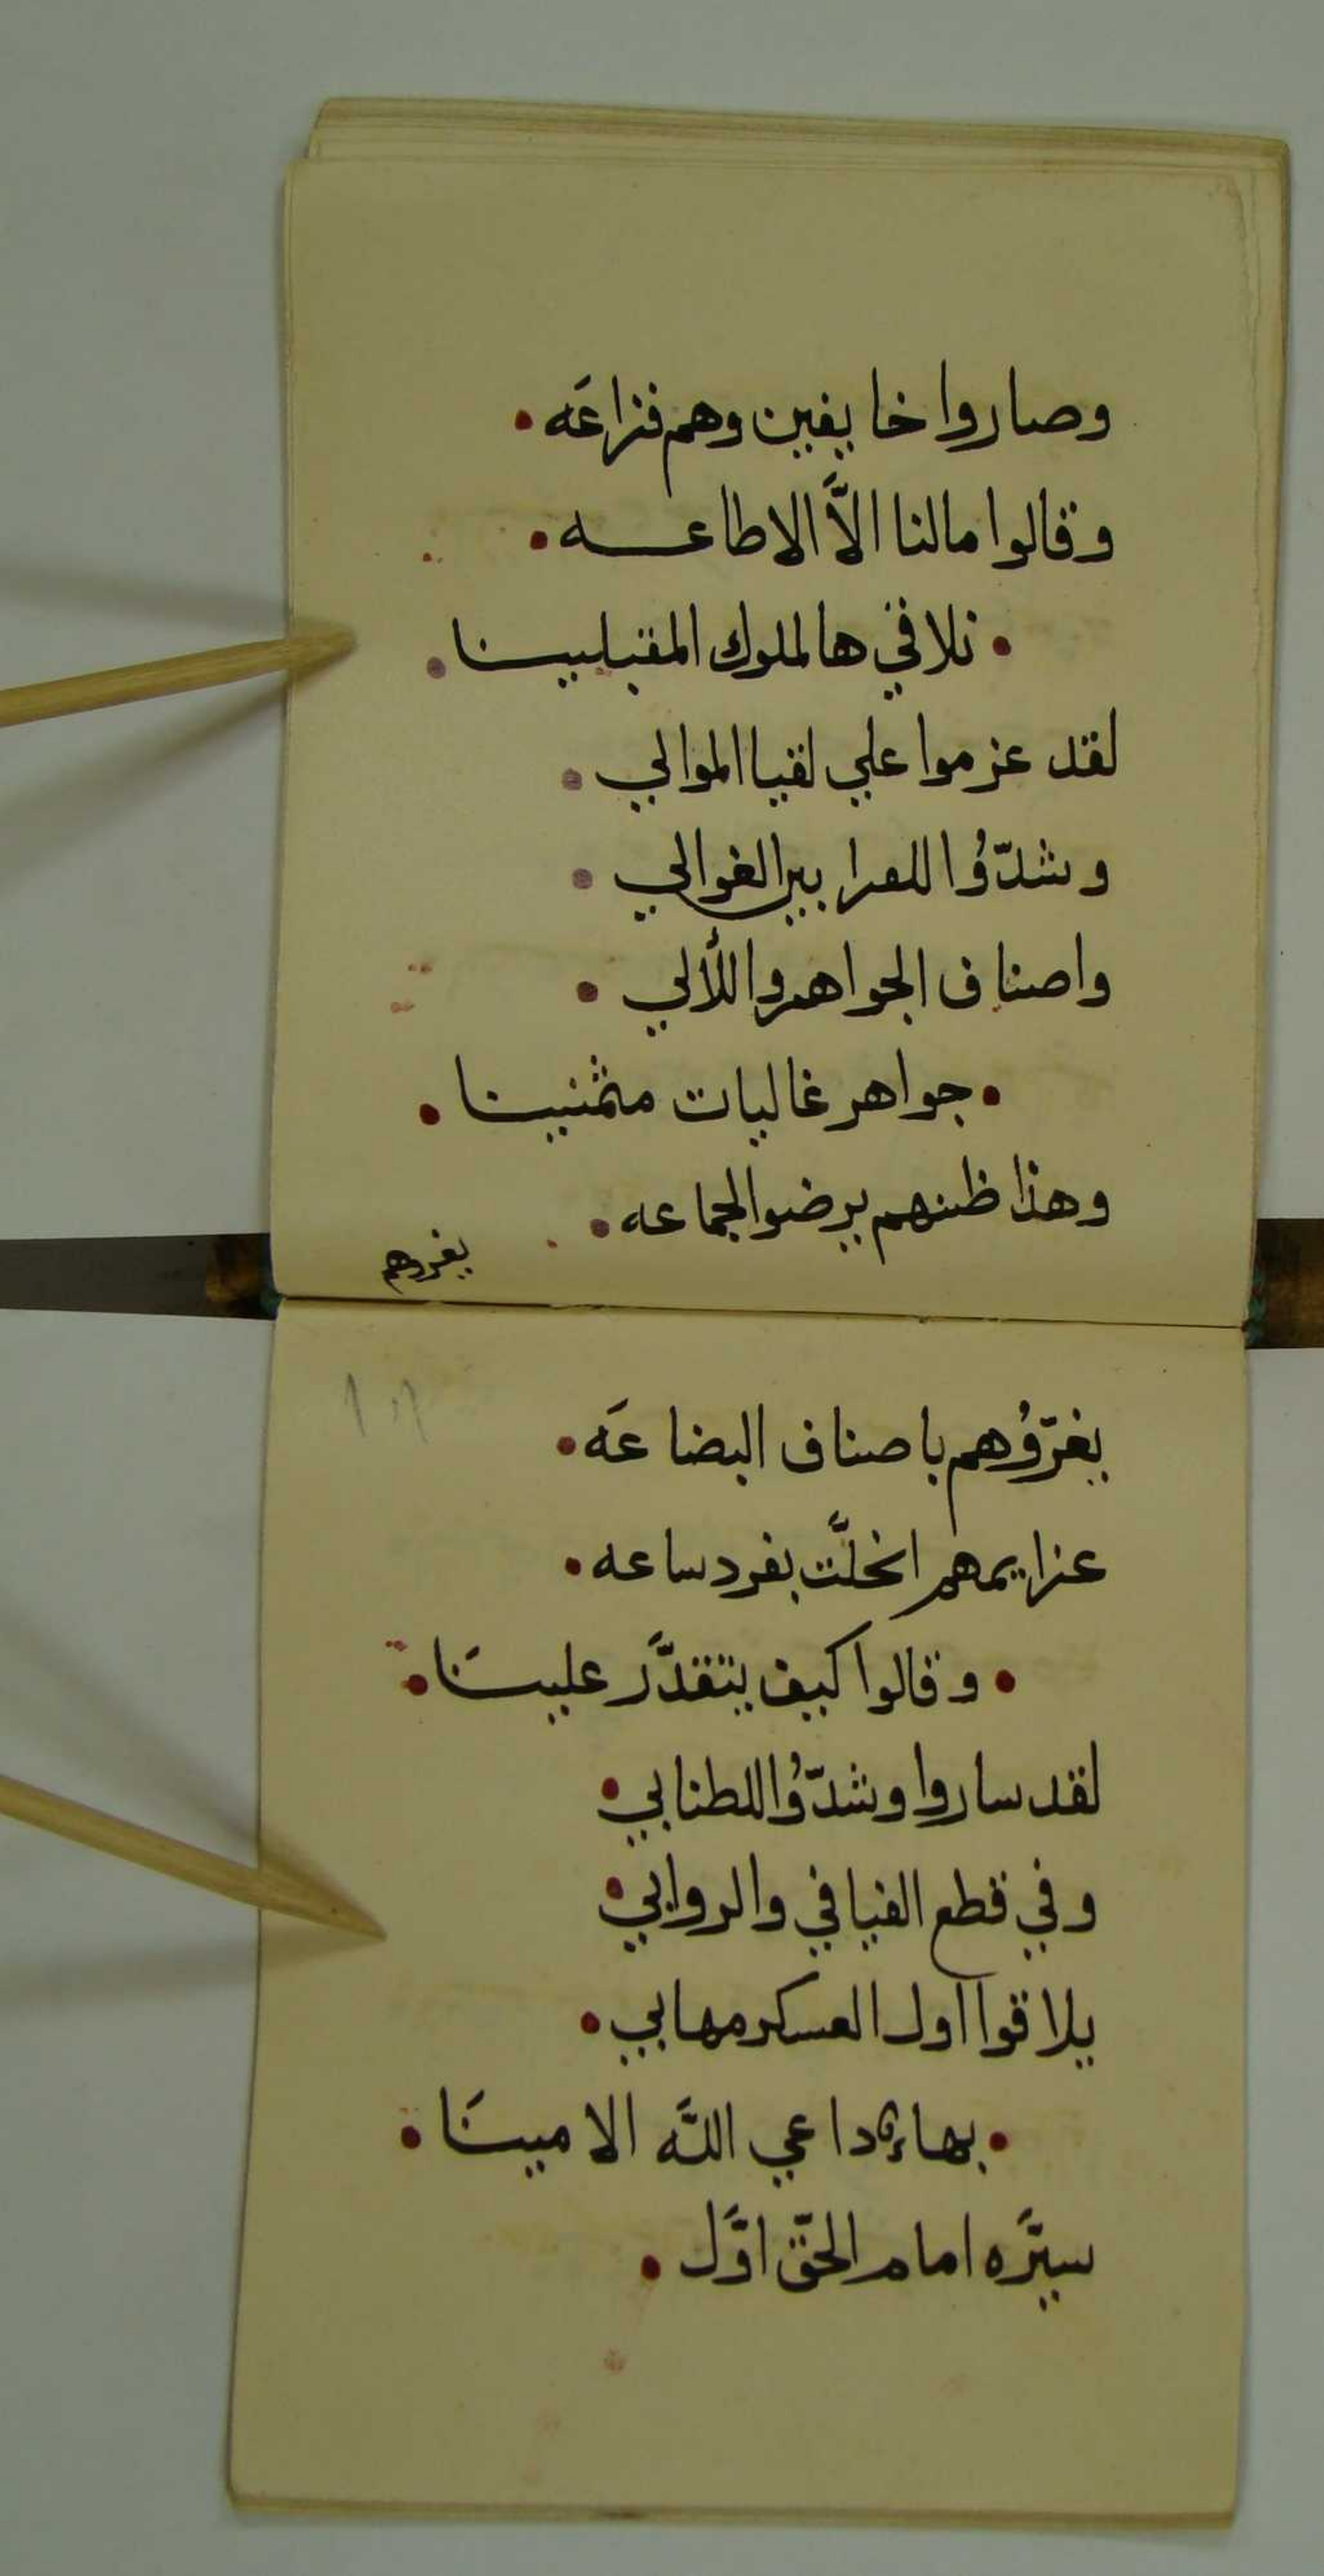 وصاروا خايفين وهم فزاعَه •
وقالوا مالنا الاَّ الاطاعـــه •
• نلاقي هالملوك المقبلييــنا •
لقد عزموا علي لقيا الموالي •
وشدّوُا للعرا بين الغوالي •
واصناف الجواهر واللألي •
• جواهر غاليات مثمنييــنا •
وهذا ظنهم يرضوا الجماعه •
يغروهم
يغرّوُهم باصناف البضاعَه •
عزايمهم انحلَّت بفرد ساعه •
• وقالوا كيف يتقدَّر علييــنَا •
لقد ساروا وشدّوُا للطنابي •
وفي قطع الفيافي والروابي •
يلاقوا اول العسكر مهابي •
• بها داعي اللَه الاميــنَا •
سيَّره امام الحقّ اوَّل •